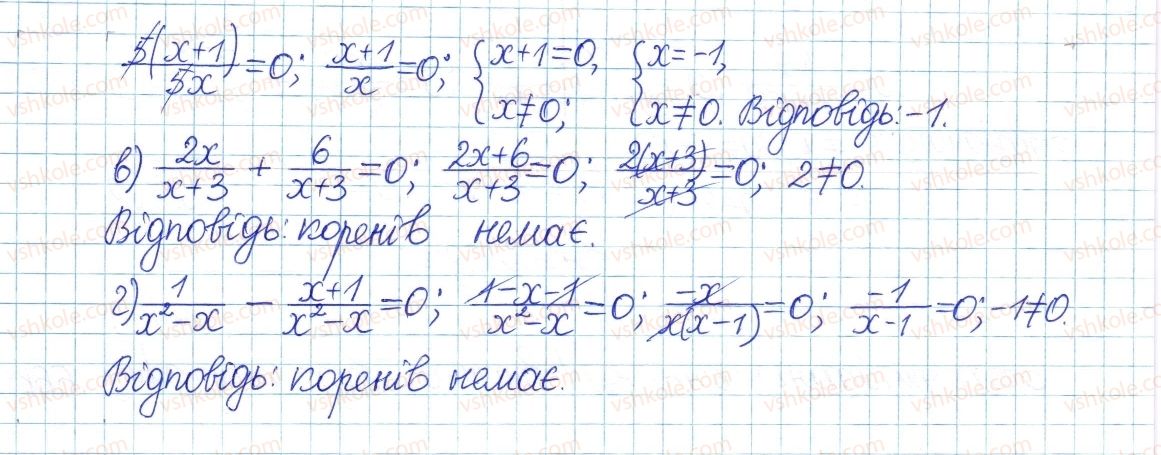 5(x+1)/5x = 0; x+1/x = 0; { x+1=0, x≠0; { x=-1, x≠0. Відповідь: -1.
в) 2x/x+3 + 6/x+3 = 0; 2x+6/x+3 = 0; 2(x+3)/x+3 = 0; 2≠0.
Відповідь: коренів немає.
г) 1/x²-x - x+1/x²-x = 0; 1-x-1/x²-x = 0; -x/x(x-1) = 0; -1/x-1 = 0; -1≠0.
Відповідь: коренів немає.